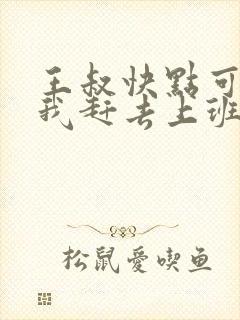 王叔快點可
我赶去上班
松鼠愛喫鱼